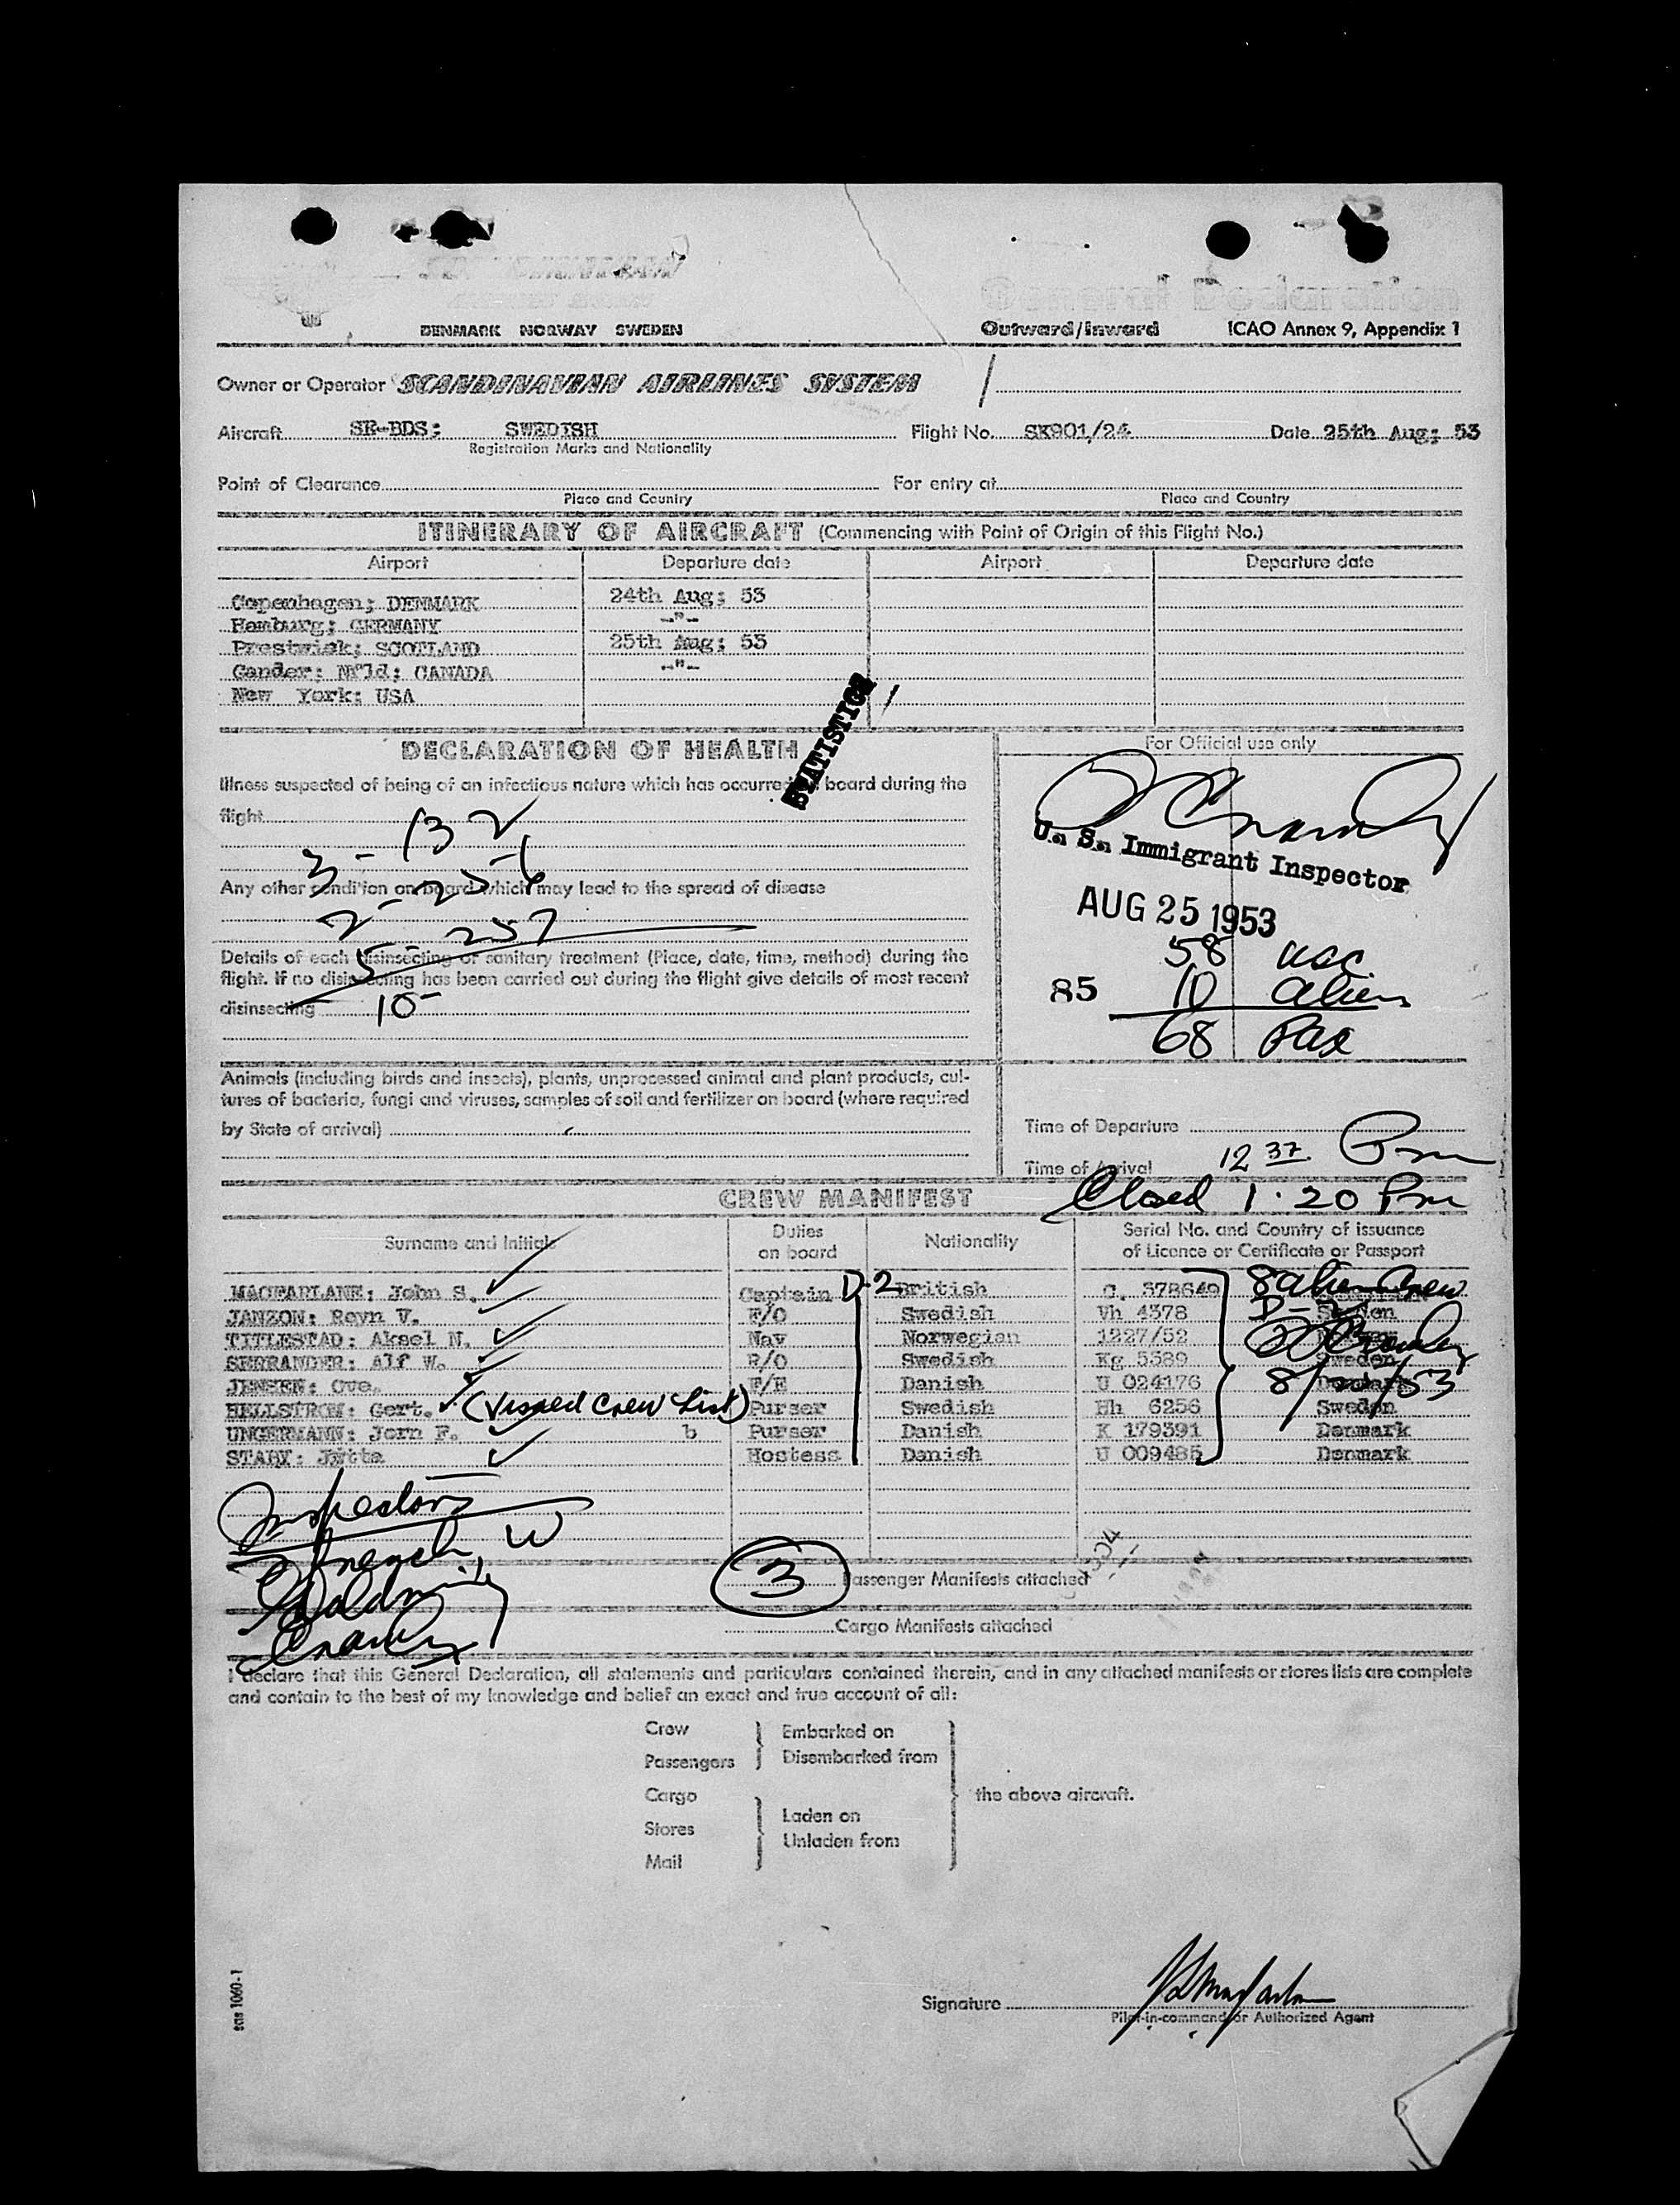 DENMARK NORWAY SWEDEN
Outward/Inward ICAO Annex 9, Appendix 1
Owner or Operator SCANDINAVIAN AIRLINES SYSTEM
Aircraft SE-BDS; SWEDISH Flight No. SK901/24 Date 25th Aug; 53
Registration Marks and Nationality
Point of Clearance For entry at
Place and Country Place and Country
ITINERARY OF AIRCRAFT (Commencing with Point of Origin of this Flight No.)
Airport Departure date Airport Departure date
Copenhagen; DENMARK 24th Aug; 53
Hamburg; GERMANY -"-
Prestwick; SCOTLAND 25th Aug; 53
Gander; Nfld; CANADA -"-
New York; USA
STATISTICS
DECLARATION OF HEALTH
Illness suspected of being of an infectious nature which has occurred board during the
flight
132
3 - 256
Any other condition on board which may lead to the spread of disease
2 - 257
Details of each disinsecting or sanitary treatment (Place, date, time, method) during the
flight. If no disinsecting has been carried out during the flight give details of most recent
disinsecting
For Official use only
U. S. Immigrant Inspector
AUG 25 1953
58 usc
85 10 aliens
68 Pax
Animals (including birds and insects), plants, unprocessed animal and plant products, cul-
tures of bacteria, fungi and viruses, samples of soil and fertilizer on board (where required
by State of arrival)
Time of Departure
Time of Arrival 12 37 Pm
Closed 1.20 Pm
CREW MANIFEST
Surname and Initials Duties on board Nationality Serial No. and Country of issuance of Licence or Certificate or Passport
MACFARLANE: John S. Captain D-2 British C. 378649 8 alien Crew
JANZON: Royn V. F/O Swedish Vh 4378 Sweden
TITLESTAD: Aksel N. Nav Norwegian 1227/52
SERRANDER: Alf W. R/O Swedish Kg 5589 Sweden
JENSEN: Ove. F/E Danish U 024176 Denmark
HELLSTROM: Gert. (Visaed Crew List) Purser Swedish Hh 6256 Sweden
UNGERMANN: Jorn F. b Purser Danish K 179391 Denmark
STABY: Jytte Hostess Danish U 009485 Denmark
Inspectors
3 Passenger Manifests attached
Cargo Manifests attached
I declare that this General Declaration, all statements and particulars contained therein, and in any attached manifests or stores lists are complete
and contain to the best of my knowledge and belief an exact and true account of all:
Crew Embarked on
Passengers Disembarked from
Cargo the above aircraft.
Stores Laden on
Unladen from
Mail
sas 1060-1
Signature
Pilot-in-command or Authorized Agent